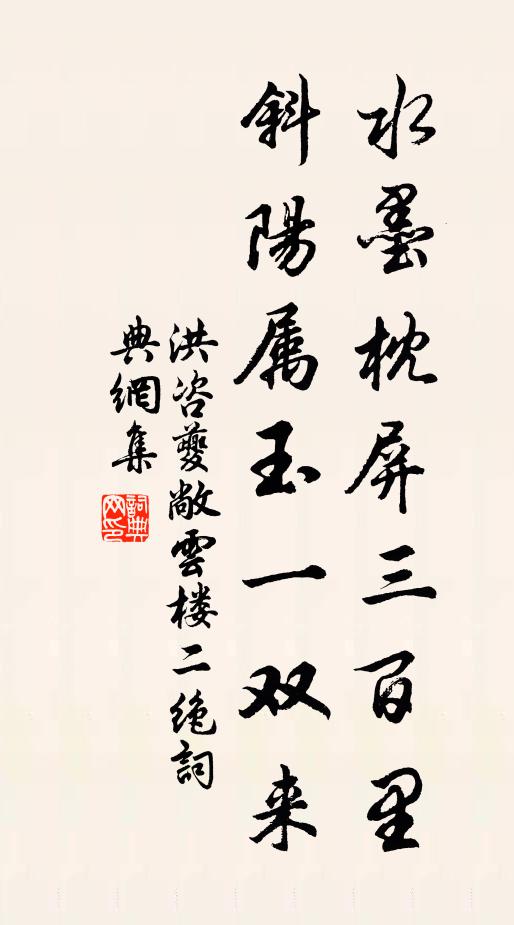 水墨枕屏三百里
斜陽属玉一双来
洪咨夔敞雲楼二绝詞
典網集
詞典网印